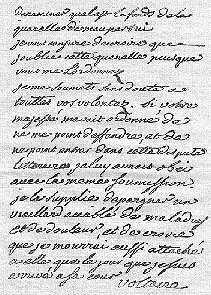 querelle
je vous conjure de croire que
j'oublie cette querelle puisque
vous me l'ordonnez
je me soumets sans doute a
toutes vos volontez. Si votre
majesté m'avoit ordonné de
ne me point deffendre et de
n'entrer dans cette dispute
litteraire je luy aurois obei
avec la meme soumission
je la supplie d'epargner un
vieillard accablé de maladies
et de douleur et de croire
que je mourrai aussi attaché
a elle que le jour que je suis
arrivé a sa cour
voltaire